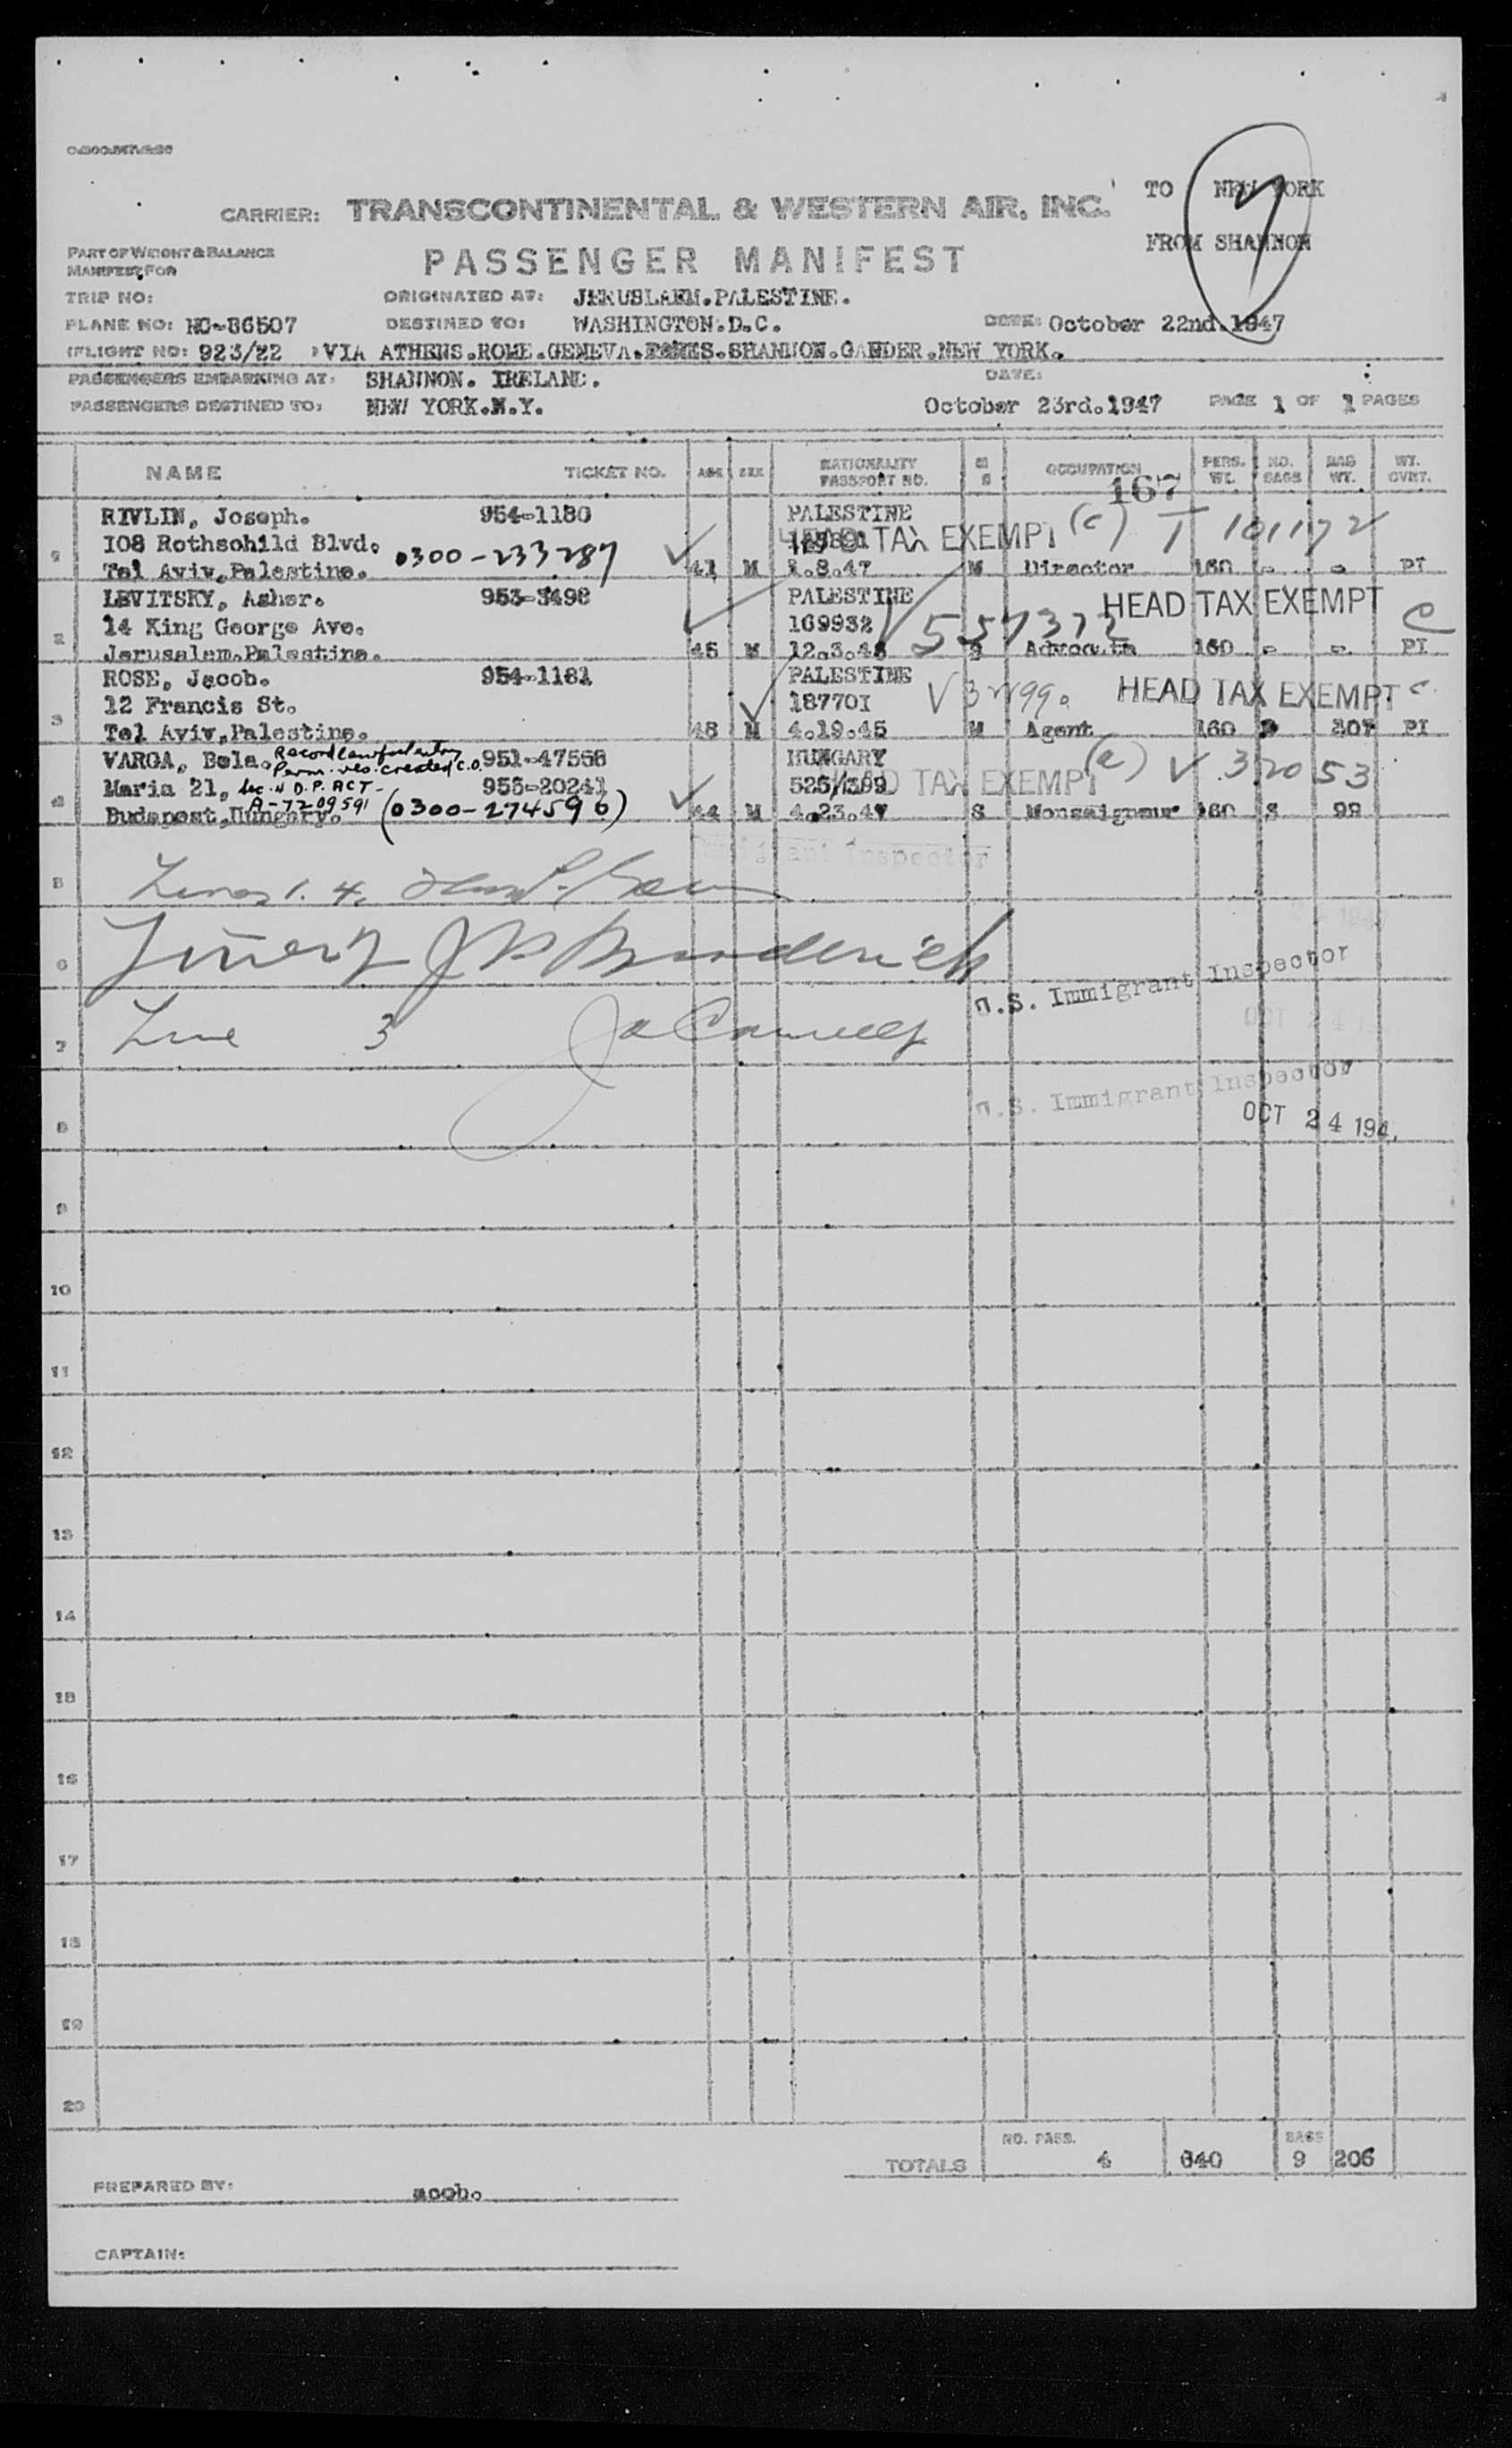 TO NEW YORK
CARRIER: TRANSCONTINENTAL & WESTERN AIR, INC.
FROM SHANNON
PART OF WEIGHT & BALANCE
MANIFEST FOR
PASSENGER MANIFEST
TRIP NO: ORIGINATED AT: JERUSLAEM.PALESTINE.
PLANE NO: NC-86507 DESTINED TO: WASHINGTON.D.C. DATE: October 22nd.1947
FLIGHT NO: 923/22 VIA ATHENS.ROME.GENEVA. SHANNON.GANDER.NEW YORK.
PASSENGERS EMBARKING AT: SHANNON. IRELAND. DATE:
PASSENGERS DESTINED TO: NEW YORK.N.Y. October 23rd.1947 PAGE 1 OF 1 PAGES
NAME TICKET NO. AGE SEX NATIONALITY PASSPORT NO. M S OCCUPATION PERS. WT. NO. BAGS BAG WT. WT. CVRT.
167
RIVLIN, Joseph. 954-1180 PALESTINE
108 Rothschild Blvd. HEAD TAX EXEMPT (c) T 101172
1 Tel Aviv,Palestine. 0300-233287 41 M 1.8.47 M Director 160 - - PI
LEVITSKY, Asher. 953-3498 PALESTINE HEAD TAX EXEMPT c
14 King George Ave. 169932 557372
2 Jerusalem.Palestine. 45 M 12.3.46 160 - - PI
ROSE, Jacob. 954-1181 PALESTINE
12 Francis St. 187701 HEAD TAX EXEMPT c
3 Tel Aviv,Palestine. 48 M 4.19.45 M Agent 160 PI
VARGA, Bela. Record lawful entry 951-47558 HUNGARY
Perm. res. created C.O.
Maria 21, Sec. 4 D.P. ACT- 953-20241 525/1389 HEAD TAX EXEMPT (c) V 320153
A-7209591
4 Budapest,Hungary. (0300-274596) 44 M 4.23.47 S Monseigneur 160 98
Immigrant Inspector
5 Lines 1. 4.
6 Line 2 J Broderick
U.S. Immigrant Inspector
7 Line 3
OCT 24
U.S. Immigrant Inspector
8 OCT 24 194
9
10
11
12
13
14
15
16
17
18
19
20
NO. PASS. BAGS
TOTALS 4 640 9 206
PREPARED BY:
CAPTAIN: